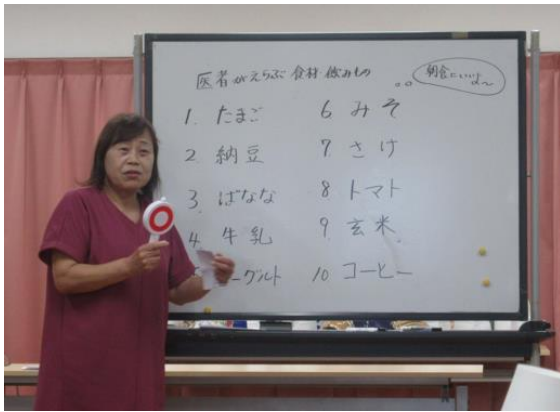 医者がえらぶ食材飲みもの
朝食にいいよ〜
1. たまご
2. 納豆
3. ばなな
4. 牛乳
ーグルト
6. みそ
7. さけ
8 トマト
9. 玄米
10 コーヒー